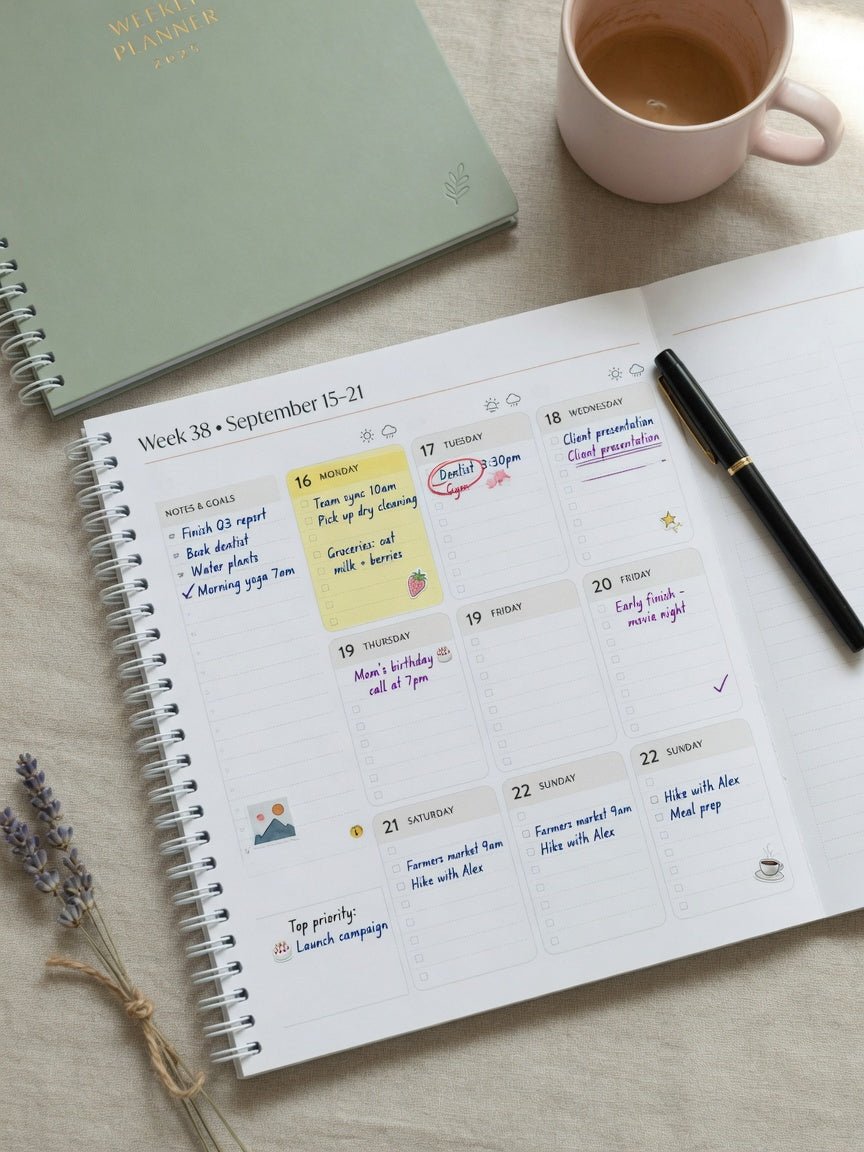 WEEKLY
PLANNER
2025
Week 38 • September 15–21
NOTES & GOALS
Finish Q3 report
Book dentist
Water plants
✓ Morning yoga 7am
16 MONDAY
Team sync 10am
Pick up dry cleaning
Groceries: oat
milk + berries
17 TUESDAY
Dentist 3:30pm
Gym
18 WEDNESDAY
Client presentation
Client presentation
19 THURSDAY
Mom's birthday
call at 7pm
19 FRIDAY
20 FRIDAY
Early finish –
movie night
✓
21 SATURDAY
Farmers market 9am
Hike with Alex
22 SUNDAY
Farmers market 9am
Hike with Alex
22 SUNDAY
Hike with Alex
Meal prep
Top priority:
Launch campaign